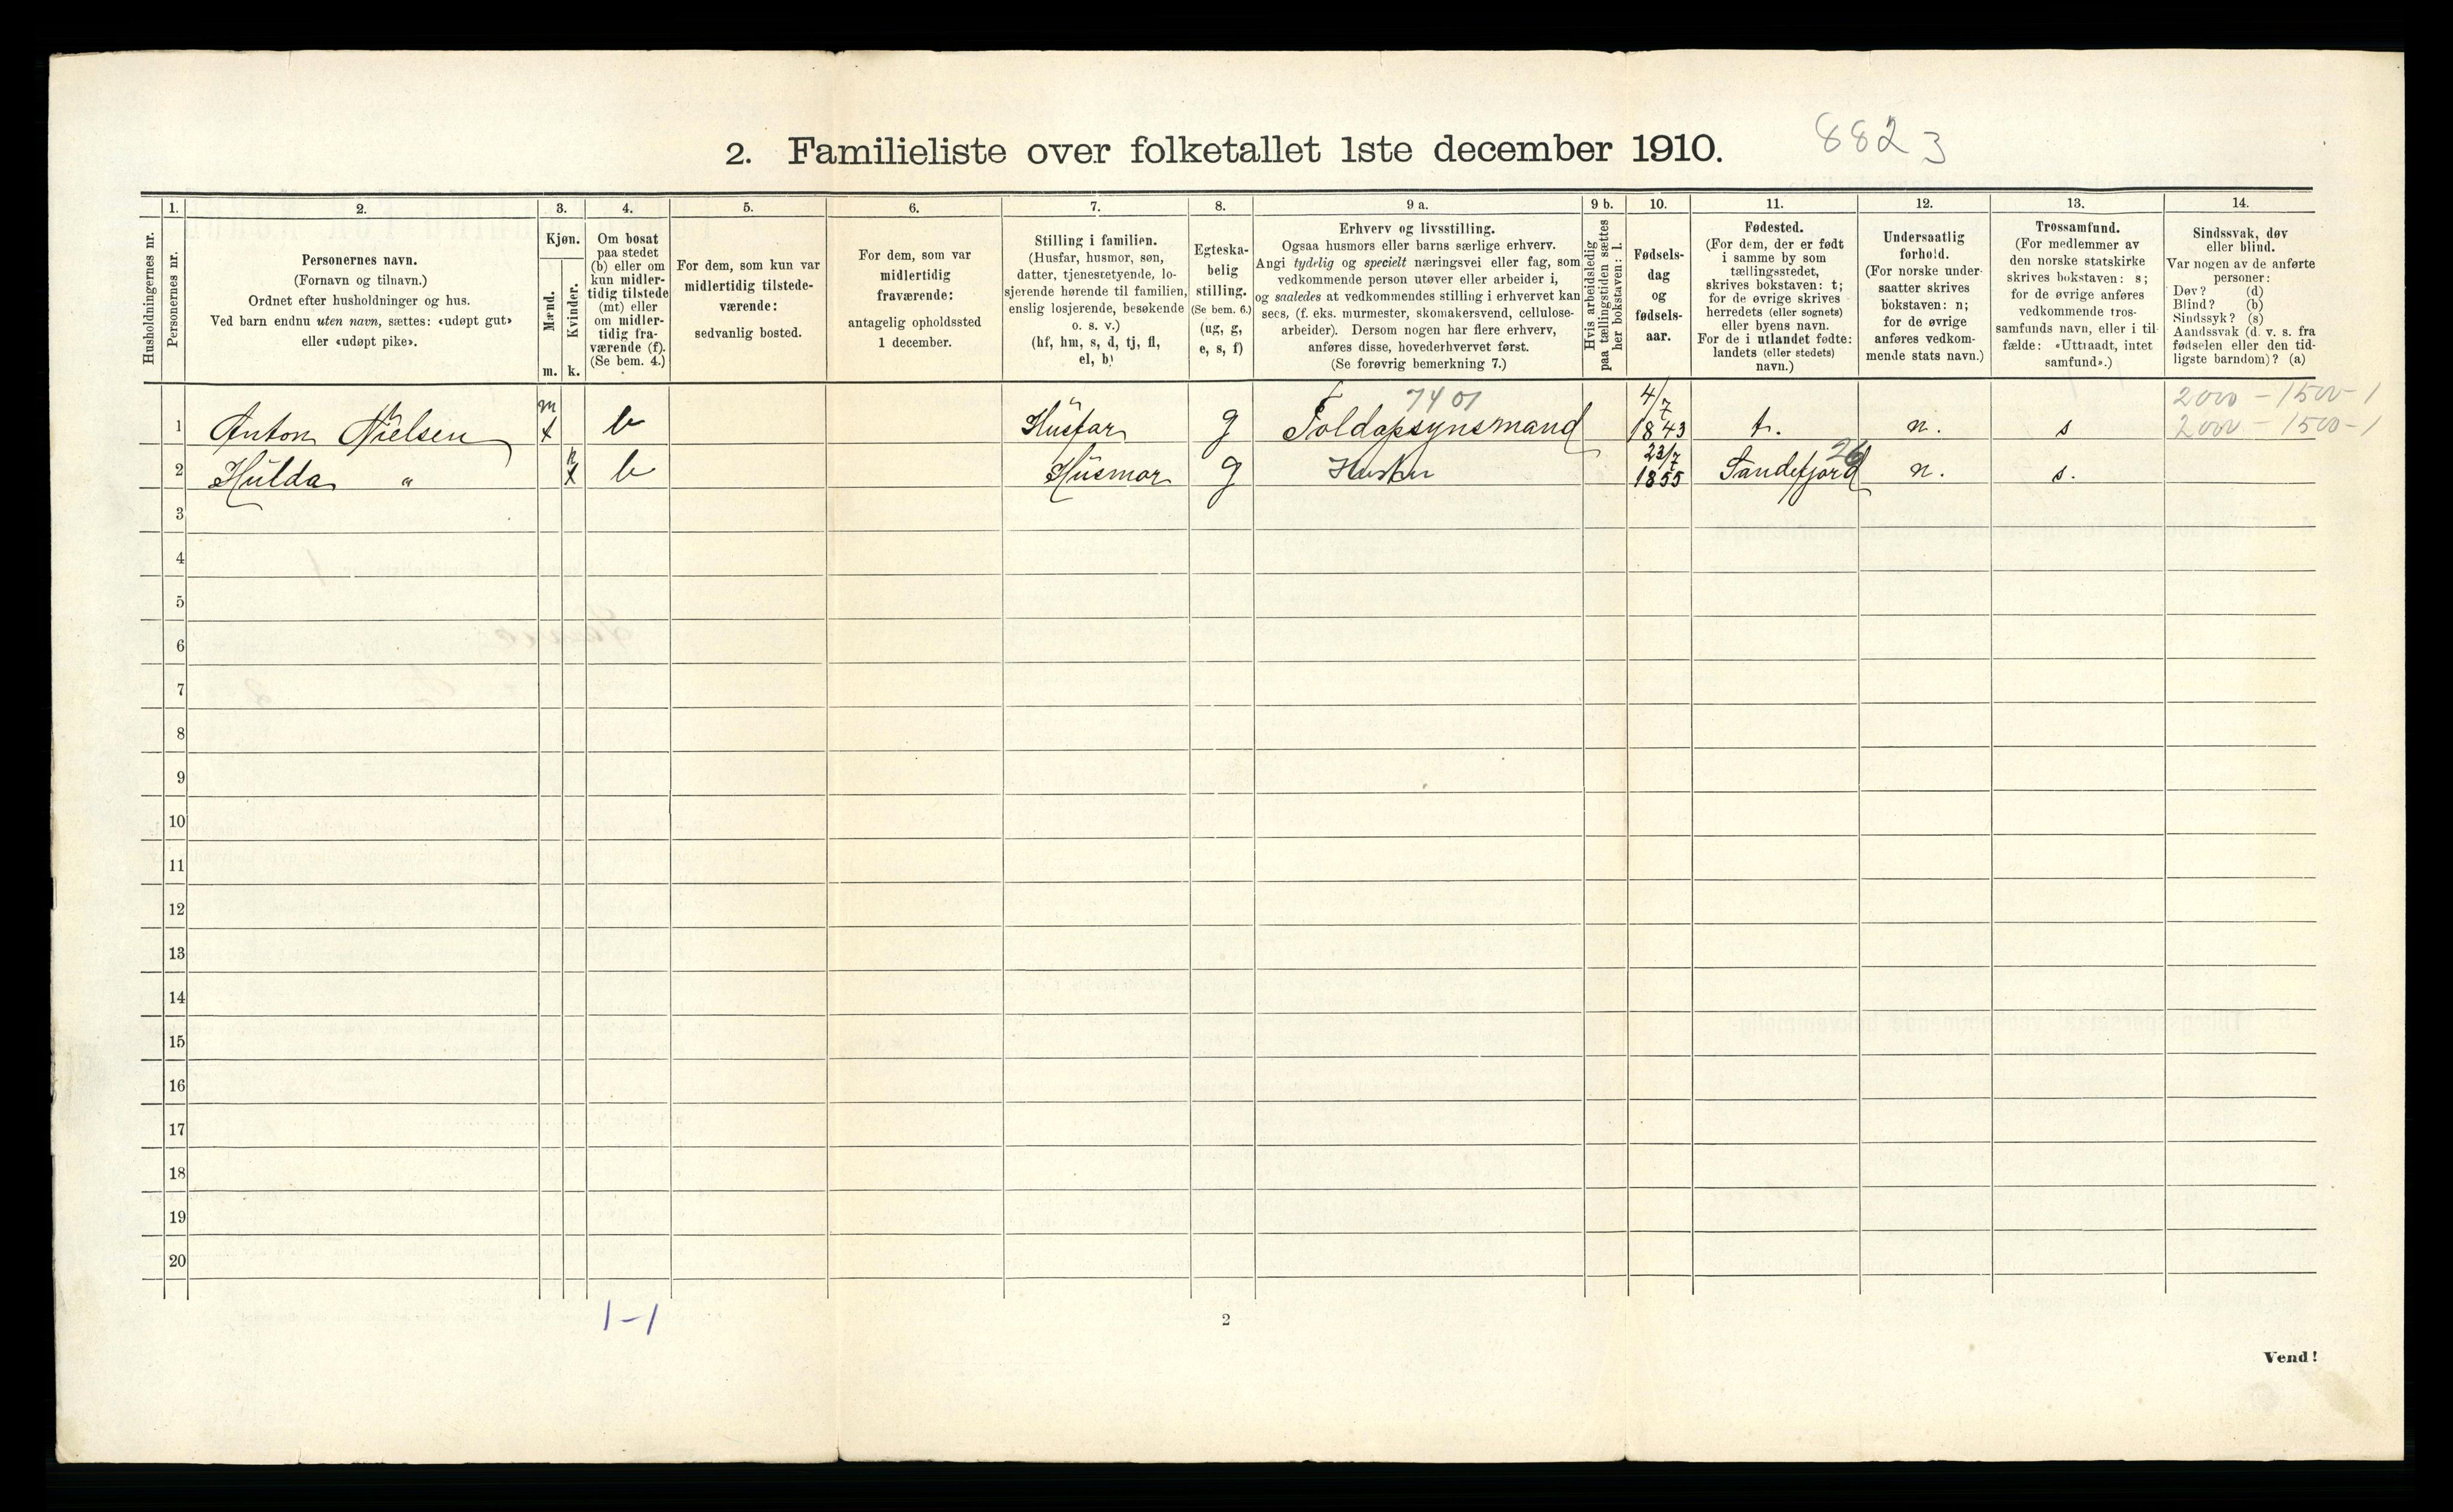 2. Familieliste over folketallet 1ste december 1910.
8823
1. 2. 3. 4. 5. 6. 7. 8. 9 a. 9 b. 10. 11. 12. 13. 14.
Husholdningernes nr.
Personernes nr.
Personernes navn.
(Fornavn og tilnavn.)
Ordnet efter husholdninger og hus.
Ved barn endnu uten navn, sættes: «udøpt gut»
eller «udøpt pike».
Kjøn.
Mænd.
Kvinder.
m. k.
Om bosat
paa stedet
(b) eller om
kun midler-
tidig tilstede
(mt) eller
om midler-
tidig fra-
værende (f).
(Se bem. 4.)
For dem, som kun var
midlertidig tilstede-
værende:
sedvanlig bosted.
For dem, som var
midlertidig
fraværende:
antagelig opholdssted
1 december.
Stilling i familien.
(Husfar, husmor, søn,
datter, tjenestetyende, lo-
sjerende hørende til familien,
enslig losjerende, besøkende
o. s. v.)
(hf, hm, s, d, tj, fl,
el, b)
Egteska-
belig
stilling.
(Se bem. 6.)
(ug, g,
e, s, f)
Erhverv og livsstilling.
Ogsaa husmors eller barns særlige erhverv.
Angi tydelig og specielt næringsvei eller fag, som
vedkommende person utøver eller arbeider i,
og saaledes at vedkommendes stilling i erhvervet kan
sees, (f. eks. murmester, skomakersvend, cellulose-
arbeider). Dersom nogen har flere erhverv,
anføres disse, hovederhvervet først.
(Se forøvrig bemerkning 7.)
Hvis arbeidsledig
paa tællingstiden sættes
her bokstaven: l.
Fødsels-
dag
og
fødsels-
aar.
Fødested.
(For dem, der er født
i samme by som
tællingsstedet,
skrives bokstaven: t;
for de øvrige skrives
herredets (eller sognets)
eller byens navn.
For de i utlandet fødte:
landets (eller stedets)
navn.)
Undersaatlig
forhold.
(For norske under-
saatter skrives
bokstaven: n;
for de øvrige
anføres vedkom-
mende stats navn.)
Trossamfund.
(For medlemmer av
den norske statskirke
skrives bokstaven: s;
for de øvrige anføres
vedkommende tros-
samfunds navn, eller i til-
fælde: «Uttraadt, intet
samfund».)
Sindssvak, døv
eller blind.
Var nogen av de anførte
personer:
Døv? (d)
Blind? (b)
Sindssyk? (s)
Aandssvak (d. v. s. fra
fødselen eller den tid-
ligste barndom)? (a)
m 7401 4/7 2000 - 1500 - 1
1 Anton Nielsen x b Husfar g Toldopsynsmand 1843 t. n. s 2000 - 1500 - 1
k 23/7 26
2 Hulda " x b Husmor g Hustru 1855 Sandefjord n. s.
3
4
5
6
7
8
9
10
11
12
13
14
15
16
17
18
19
20
1-1
2
Vend!